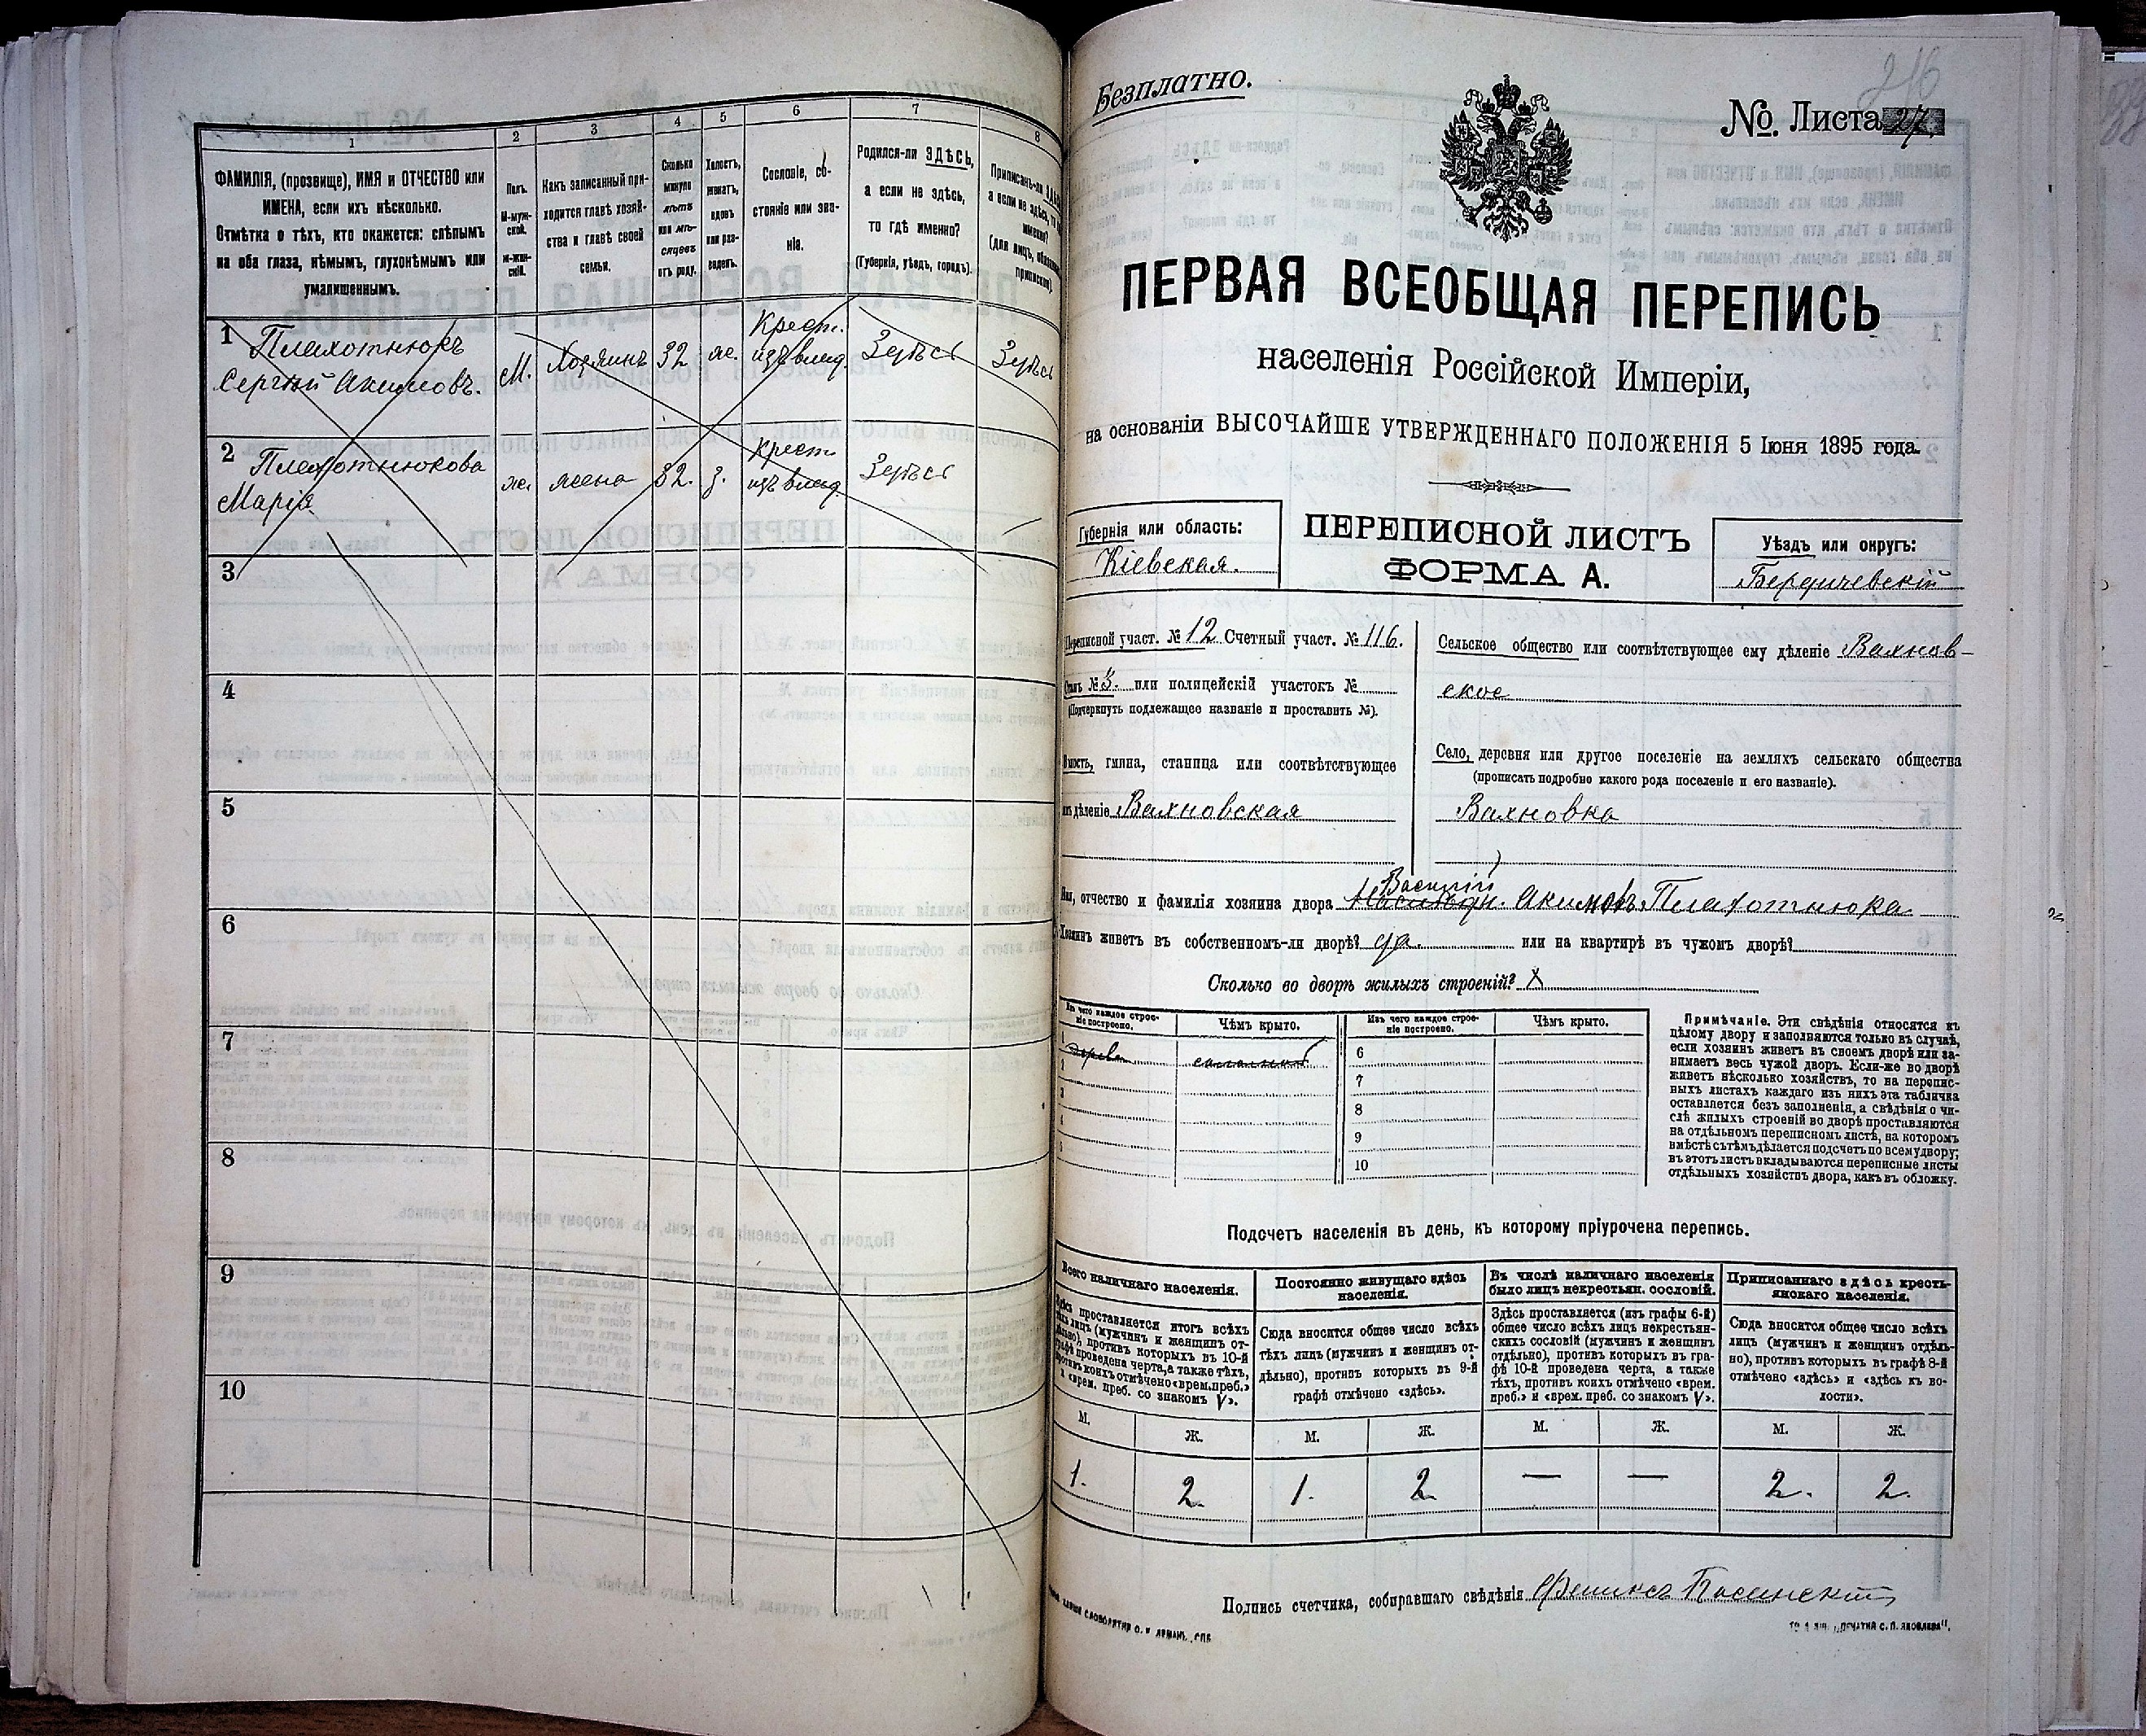 1
2
3
4
5
6
7
8
ФАМИЛІЯ, (прозвище), ИМЯ и ОТЧЕСТВО или
ИМЕНА, если ихъ нѣсколько.
Отмѣтка о тѣхъ, кто окажется: слѣпымъ
на оба глаза, нѣмымъ, глухонѣмымъ или
умалишеннымъ.
Полъ.
М-муж-
ской.
ж-жен-
скій.
Какъ записанный при-
ходится главѣ хозяй-
ства и главѣ своей
семьи.
Сколько
минуло
лѣтъ
или мѣ-
сяцевъ
отъ роду.
Холостъ,
женатъ,
вдовъ
или раз-
веденъ.
Сословіе, со-
стояніе или зва-
ніе.
Родился-ли ЗДѢСЬ,
а если не здѣсь,
то гдѣ именно?
(Губернія, уѣздъ, городъ).
Приписанъ-ли
а если не здѣсь,
именно?
(для лицъ,
припискѣ)
1 Плахотнюкъ
Сергѣй Акимовъ.
М. Хозяинъ 32 ж. Крест. изъ влад. Здѣсь Здѣсь
2 Плахотнюкова
Марія
ж. жена 32. з. Крест. изъ влад. Здѣсь
3
4
5
6
7
8
9
10
Безплатно.
216
№. Листа 27.
ПЕРВАЯ ВСЕОБЩАЯ ПЕРЕПИСЬ
населенія Россійской Имперіи,
на основаніи ВЫСОЧАЙШЕ УТВЕРЖДЕННАГО ПОЛОЖЕНІЯ 5 Іюня 1895 года.
Губернія или область:
Кіевская.
ПЕРЕПИСНОЙ ЛИСТЪ
ФОРМА А.
Уѣздъ или округъ:
Бердичевскій
Переписной участ. № 12 Счетный участ. № 116.
Станъ № 3. или полицейскій участокъ №
(Подчеркнуть подлежащее названіе и проставить №).
Волость, гмина, станица или соотвѣтствующее
имъ дѣленіе Вахновская
Сельское общество или соотвѣтствующее ему дѣленіе Вахнов-
ское
Село, деревня или другое поселеніе на земляхъ сельскаго общества
(прописать подробно какого рода поселеніе и его названіе).
Вахновка
Василій
Имя, отчество и фамилія хозяина двора Акимовъ Плахотнюка
Хозяинъ живетъ въ собственномъ-ли дворѣ? да. или на квартирѣ въ чужомъ дворѣ?
Сколько во дворѣ жилыхъ строеній? X
Изъ чего каждое строе-
ніе построено.
Чѣмъ крыто.
Изъ чего каждое строе-
ніе построено.
Чѣмъ крыто.
1 дерева соломой
2
3
4
5
6
7
8
9
10
Примѣчаніе. Эти свѣдѣнія относятся къ
цѣлому двору и заполняются только въ случаѣ,
если хозяинъ живетъ въ своемъ дворѣ или за-
нимаетъ весь чужой дворъ. Если-же во дворѣ
живетъ нѣсколько хозяйствъ, то на перепис-
ныхъ листахъ каждаго изъ нихъ эта табличка
оставляется безъ заполненія, а свѣдѣнія о чи-
слѣ жилыхъ строеній во дворѣ проставляются
на отдѣльномъ переписномъ листѣ, на которомъ
вмѣстѣ съ тѣмъ дѣлается подсчетъ по всему двору;
въ этотъ листъ вкладываются переписные листы
отдѣльныхъ хозяйствъ двора, какъ въ обложку.
Подсчетъ населенія въ день, къ которому пріурочена перепись.
Всего наличнаго населенія.
Здѣсь проставляется итогъ всѣхъ
тѣхъ лицъ (мужчинъ и женщинъ от-
дѣльно), противъ которыхъ въ 10-й
графѣ проведена черта, а также тѣхъ,
противъ коихъ отмѣчено «врем. преб.»
и «врем. преб. со знакомъ V».
Постоянно живущаго здѣсь
населенія.
Сюда вносится общее число всѣхъ
тѣхъ лицъ (мужчинъ и женщинъ от-
дѣльно), противъ которыхъ въ 9-й
графѣ отмѣчено «здѣсь».
Въ числѣ наличнаго населенія
было лицъ некрестьян. сословій.
Здѣсь проставляется (изъ графы 6-й)
общее число всѣхъ лицъ некрестьян-
скихъ сословій (мужчинъ и женщинъ
отдѣльно), противъ которыхъ въ гра-
фѣ 10-й проведена черта, а также
тѣхъ, противъ коихъ отмѣчено «врем.
преб.» и «врем. преб. со знакомъ V».
Приписаннаго здѣсь кресть-
янскаго населенія.
Сюда вносится общее число всѣхъ
лицъ (мужчинъ и женщинъ отдѣль-
но), противъ которыхъ въ графѣ 8-й
отмѣчено «здѣсь» и «здѣсь къ во-
лости».
М. Ж. М. Ж. М. Ж. М. Ж.
1. 2. 1. 2. — — 2. 2.
Подпись счетчика, собиравшаго свѣдѣнія Феликсъ Посинскій